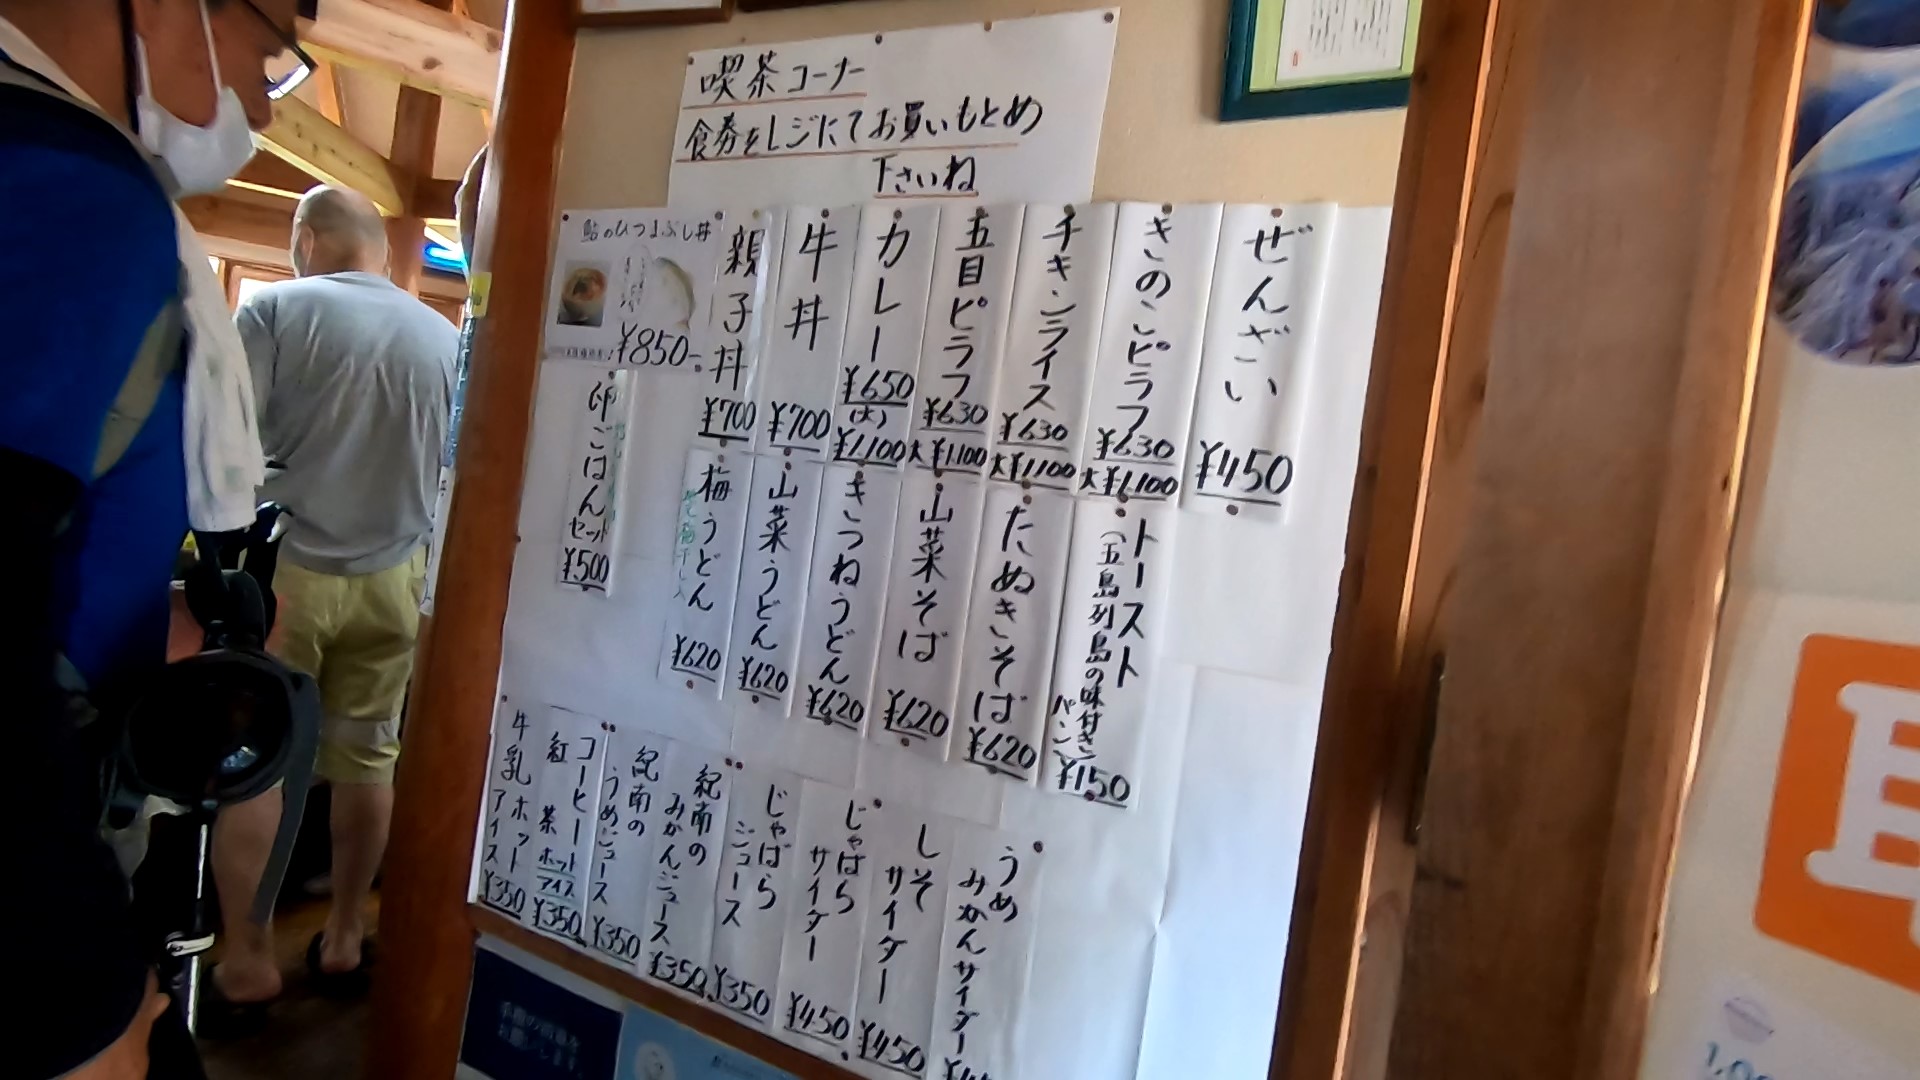 喫茶コーナー
食券をレジにてお買いもとめ
下さいね
ぜんざい
¥450
きのこピラフ
¥630
大¥1,100
チキンライス
¥630
大¥1,100
五目ピラフ
¥630
大¥1,100
カレー
¥650
(大)
¥1,100
牛丼
¥700
親子丼
¥700
鮎のひつまぶし丼
¥850-
トースト
(五島列島の味付き
パン)
¥150
たぬきそば
¥620
山菜そば
¥620
きつねうどん
¥620
山菜うどん
¥620
梅うどん
¥620
卵ごはん
セット
¥500
うめ
みかんサイダー
しそ
サイダー
¥450
じゃばら
サイダー
¥450
じゃばら
ジュース
¥350
紀南の
みかんジュース
¥350
紀南の
うめジュース
¥350
コーヒー
紅茶
ホット
アイス
¥350
牛乳
ホット
アイス
¥350